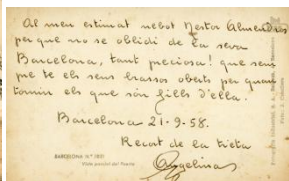 Al meu estimat nebot Nestor Almendros
per que no se oblidi de la seva
Barcelona, tant preciosa! que sem
pre te els seus brassos oberts per quan
tornin els que són fills d'ella.
Barcelona 21-9-58.
Recort de la tieta
Angelina
BARCELONA N.º 1801
Vista parcial del Puerto